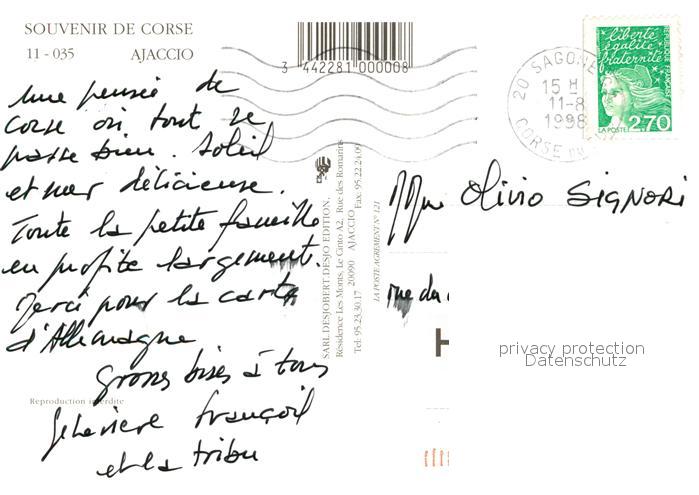 SOUVENIR DE CORSE
11 - 035 AJACCIO
3 442281 000008
Une pensée de
Corse où tout se
passe bien. Soleil
et mer délicieuse.
Toute la petite famille
en profite largement.
Merci pour la carte
d'Allemagne
Grosses bises à tous
Reproduction interdite
Geneviève François
et la tribu
SARL DESJOBERT DESJO EDITION,
Résidence Les Monts, Le Cinto A2, Rue des Romarins
20090 AJACCIO
Tel: 95.23.30.17 Fax: 95.22.24.09
LA POSTE AGREMENT N° 121
20 SAGONE
15 H
11-8
1998
CORSE DU
liberté
égalité
fraternité
REPUBLIQUE FRANÇAISE
LA POSTE 2,70
Mme Olivio SIGNORI
rue du
H
privacy protection
Datenschutz